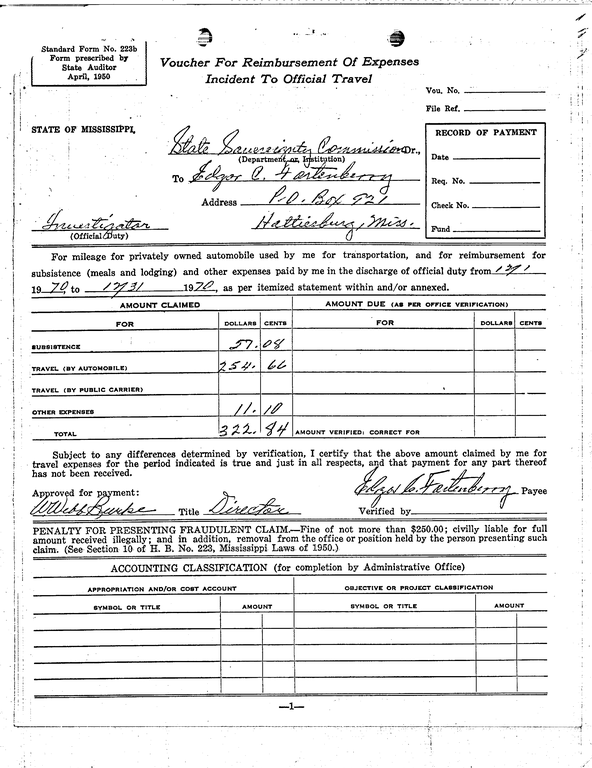 Standard Form No. 223b
Form prescribed by
State Auditor
April, 1950
Voucher For Reimbursement Of Expenses
Incident To Official Travel
Vou. No.
File Ref.
STATE OF MISSISSIPPI,
State Sovereignty Commission Dr.,
(Department or Institution)
To Edgar C. Fortenberry
Address P.O. Box 921
Hattiesburg, Miss.
Investigator
(Official Duty)
RECORD OF PAYMENT
Date
Req. No.
Check No.
Fund
For mileage for privately owned automobile used by me for transportation, and for reimbursement for
subsistence (meals and lodging) and other expenses paid by me in the discharge of official duty from 12/1
1970, to 12/31 1970, as per itemized statement within and/or annexed.
AMOUNT CLAIMED AMOUNT DUE (AS PER OFFICE VERIFICATION)
FOR DOLLARS CENTS FOR DOLLARS CENTS
SUBSISTENCE 57.08
TRAVEL (BY AUTOMOBILE) 254.66
TRAVEL (BY PUBLIC CARRIER)
OTHER EXPENSES 11.10
TOTAL 322.84 AMOUNT VERIFIED: CORRECT FOR
Subject to any differences determined by verification, I certify that the above amount claimed by me for
travel expenses for the period indicated is true and just in all respects, and that payment for any part thereof
has not been received.
Edgar C. Fortenberry Payee
Approved for payment:
W Webb Burke Title Director Verified by
PENALTY FOR PRESENTING FRAUDULENT CLAIM.—Fine of not more than $250.00; civilly liable for full
amount received illegally; and in addition, removal from the office or position held by the person presenting such
claim. (See Section 10 of H. B. No. 223, Mississippi Laws of 1950.)
ACCOUNTING CLASSIFICATION (for completion by Administrative Office)
APPROPRIATION AND/OR COST ACCOUNT OBJECTIVE OR PROJECT CLASSIFICATION
SYMBOL OR TITLE AMOUNT SYMBOL OR TITLE AMOUNT
—1—